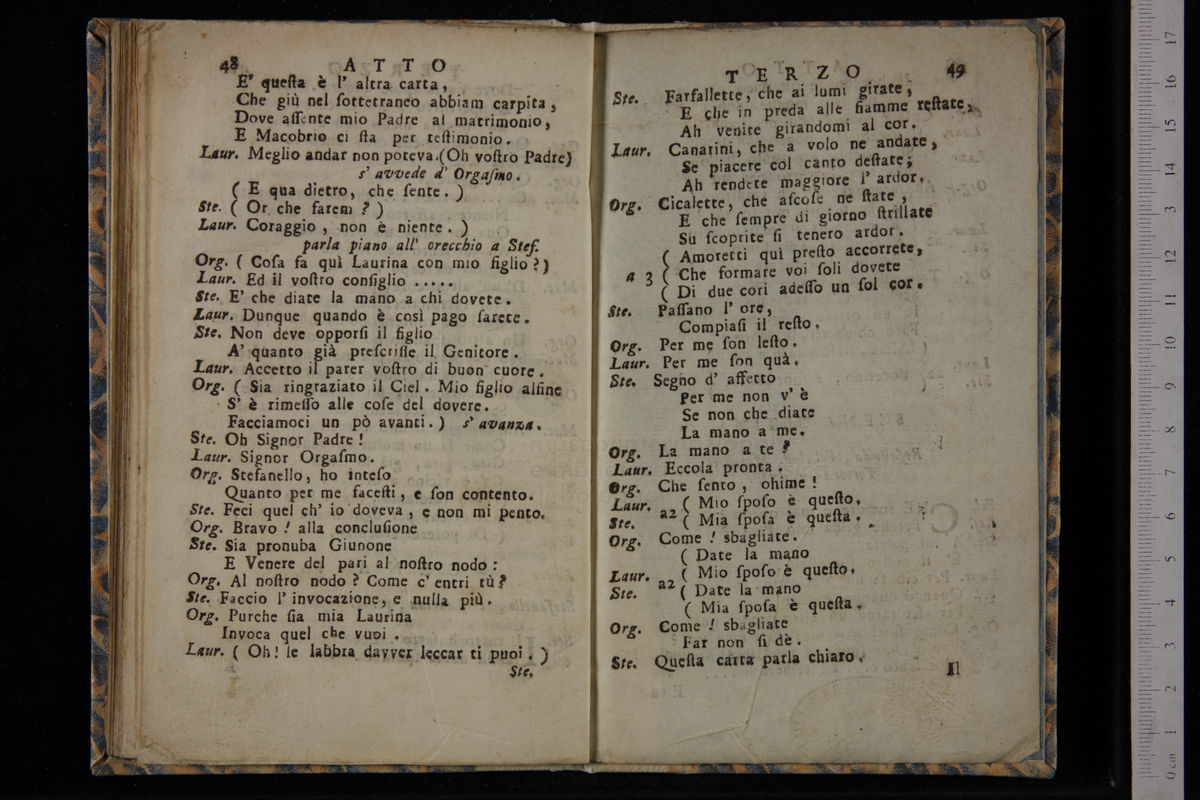 48 ATTO
E' queſta è l' altra carta,
Che giù nel ſottetraneo abbiam carpita,
Dove aſſente mio Padre al matrimonio,
E Macobrio ci ſta per teſtimonio.
Laur. Meglio andar non poteva. (Oh voſtro Padre)
s' avvede d' Orgaſmo.
( E qua dietro, che ſente. )
Ste. ( Or che farem ? )
Laur. Coraggio, non è niente. )
parla piano all' orecchio a Stef.
Org. ( Coſa fa quì Laurina con mio figlio ? )
Laur. Ed il voſtro conſiglio .....
Ste. E' che diate la mano a chi dovete.
Laur. Dunque quando è così pago ſarete.
Ste. Non deve opporſi il figlio
A' quanto già preſcriſſe il Genitore.
Laur. Accetto il parer voſtro di buon cuore.
Org. ( Sia ringraziato il Ciel. Mio figlio alfine
S' è rimeſſo alle coſe del dovere.
Facciamoci un pò avanti. ) s' avanza.
Ste. Oh Signor Padre !
Laur. Signor Orgaſmo.
Org. Stefanello, ho inteſo
Quanto per me faceſti, e ſon contento.
Ste. Feci quel ch' io doveva, e non mi pento.
Org. Bravo ! alla concluſione
Ste. Sia pronuba Giunone
E Venere del pari al noſtro nodo :
Org. Al noſtro nodo ? Come c' entri tù ?
Ste. Faccio l' invocazione, e nulla più.
Org. Purche ſia mia Laurina
Invoca quel che vuoi .
Laur. ( Oh! le labbra davver leccar ti puoi. )
Ste.
TERZO 49
Ste. Farfallette, che ai lumi girate,
E che in preda alle fiamme reſtate,
Ah venite girandomi al cor.
Laur. Canarini, che a volo ne andate,
Se piacere col canto deſtate;
Ah rendete maggiore l' ardor.
Org. Cicalette, che aſcoſe ne ſtate,
E che ſempre di giorno ſtrillate
Sù ſcoprite ſi tenero ardor.
( Amoretti quì preſto accorrete,
a 3 ( Che formare voi ſoli dovete
( Di due cori adeſſo un ſol cor.
Ste. Paſſano l' ore,
Compiaſi il reſto.
Org. Per me ſon leſto.
Laur. Per me ſon quà.
Ste. Segno d' affetto
Per me non v' è
Se non che diate
La mano a me.
Org. La mano a te ?
Laur. Eccola pronta.
Org. Che ſento, ohime !
Laur. a2 ( Mio ſpoſo è queſto.
Ste. ( Mia ſpoſa è queſta.
Org. Come ! sbagliate.
( Date la mano
Laur. ( Mio ſpoſo è queſto.
Ste. a2 ( Date la mano
( Mia ſpoſa è queſta.
Org. Come ! sbagliate
Far non ſi dè.
Ste. Queſta carta parla chiaro.
Il
17
16
15
14
13
12
11
10
9
8
7
6
5
4
3
2
1
0 cm